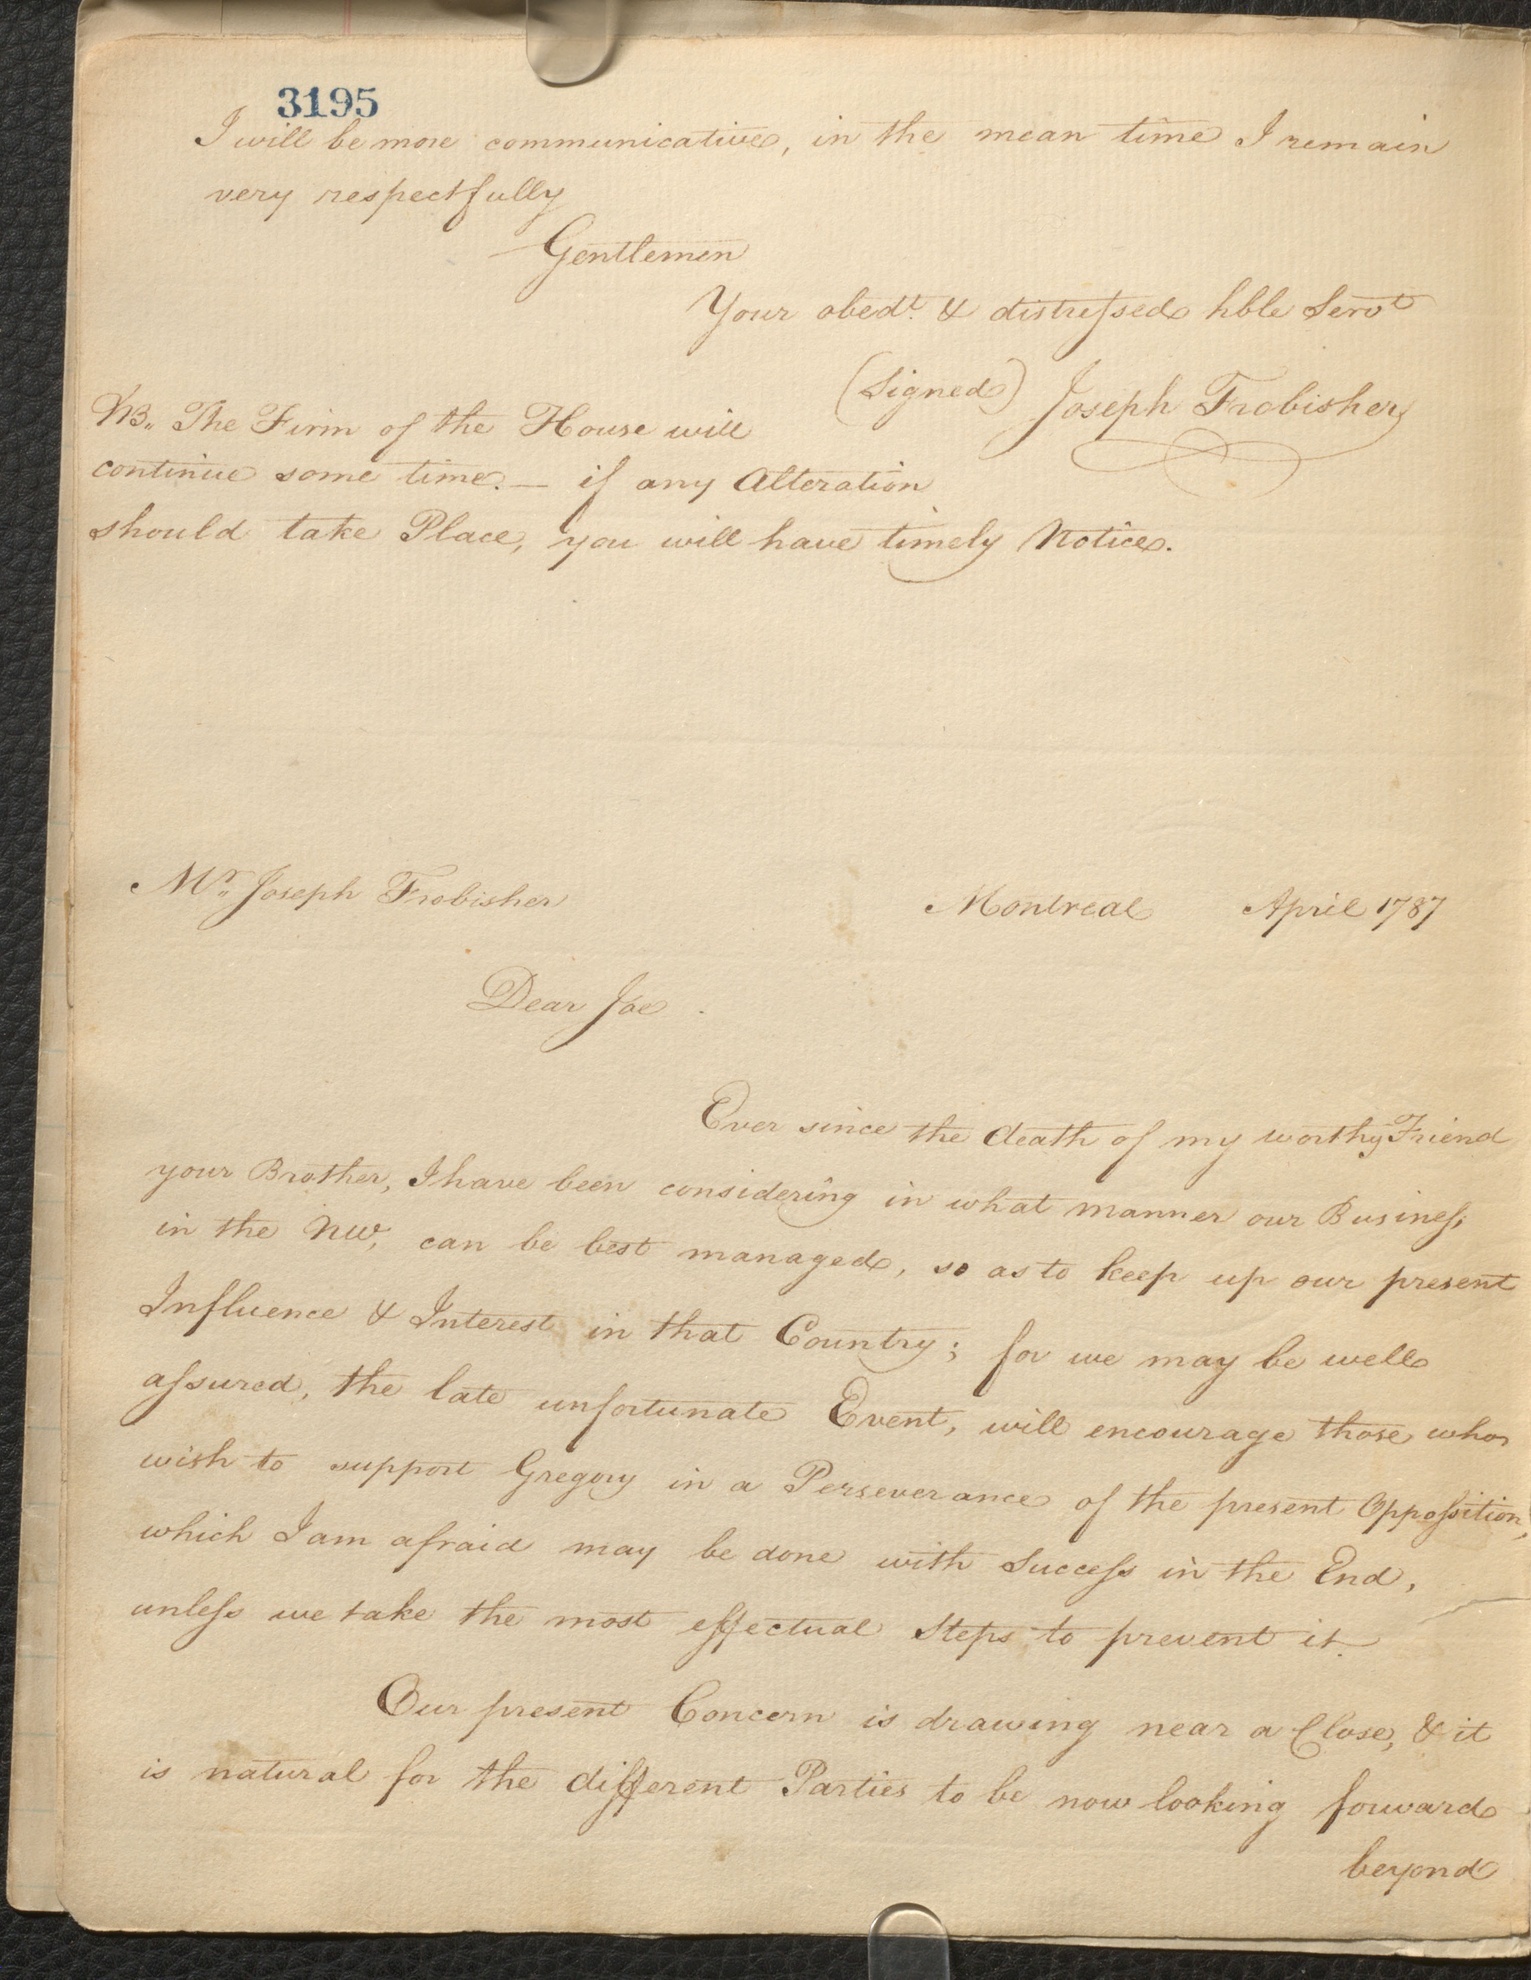 3195
I will be more communicative, in the mean time I remain
very respectfully
Gentlemen
Your obedt. & distressed hble Servt
(Signed) Joseph Frobisher
NB. The Firm of the House will
continue some time. — if any Alteration
should take Place, you will have timely Notice.
Mr. Joseph Frobisher
Montreal April 1787
Dear Joe.
Ever since the death of my worthy Friend
your Brother, I have been considering in what manner our Business
in the NW, can be best managed, so as to keep up our present
Influence & Interest in that Country; for we may be well
assured, the late unfortunate Event, will encourage those who
wish to support Gregory in a Perseverance of the present Opposition,
which I am afraid may be done with Success in the End,
unless we take the most effectual Steps to prevent it.
Our present Concern is drawing near a Close, & it
is natural for the different Parties to be now looking forward
beyond